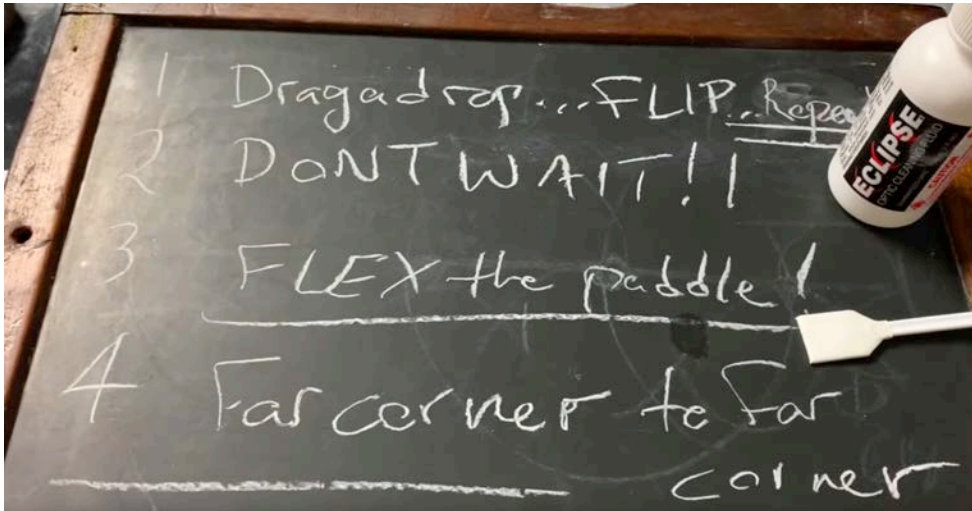 1 Dragadrop...FLIP...Repeat
2 DONT WAIT!!
3 FLEX the paddle!
4 Far corner to Far
corner
ECLIPSE
OPTIC CLEANING FLUID